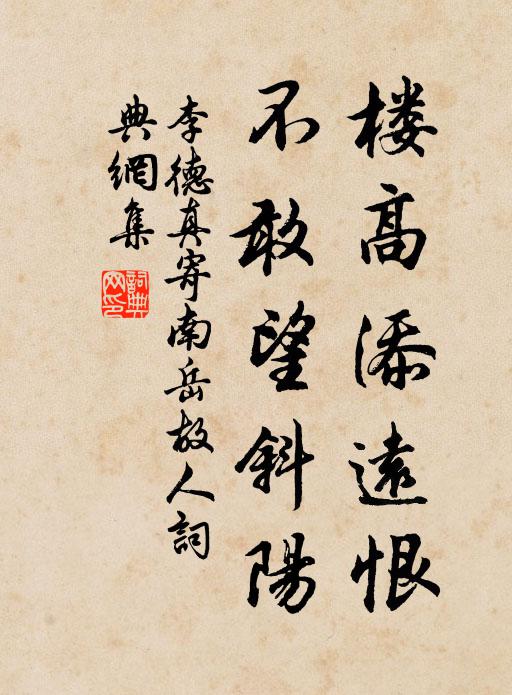 楼高添遠恨
不敢望斜陽
李德真寄南岳故人詞
典網集
詞典
网印